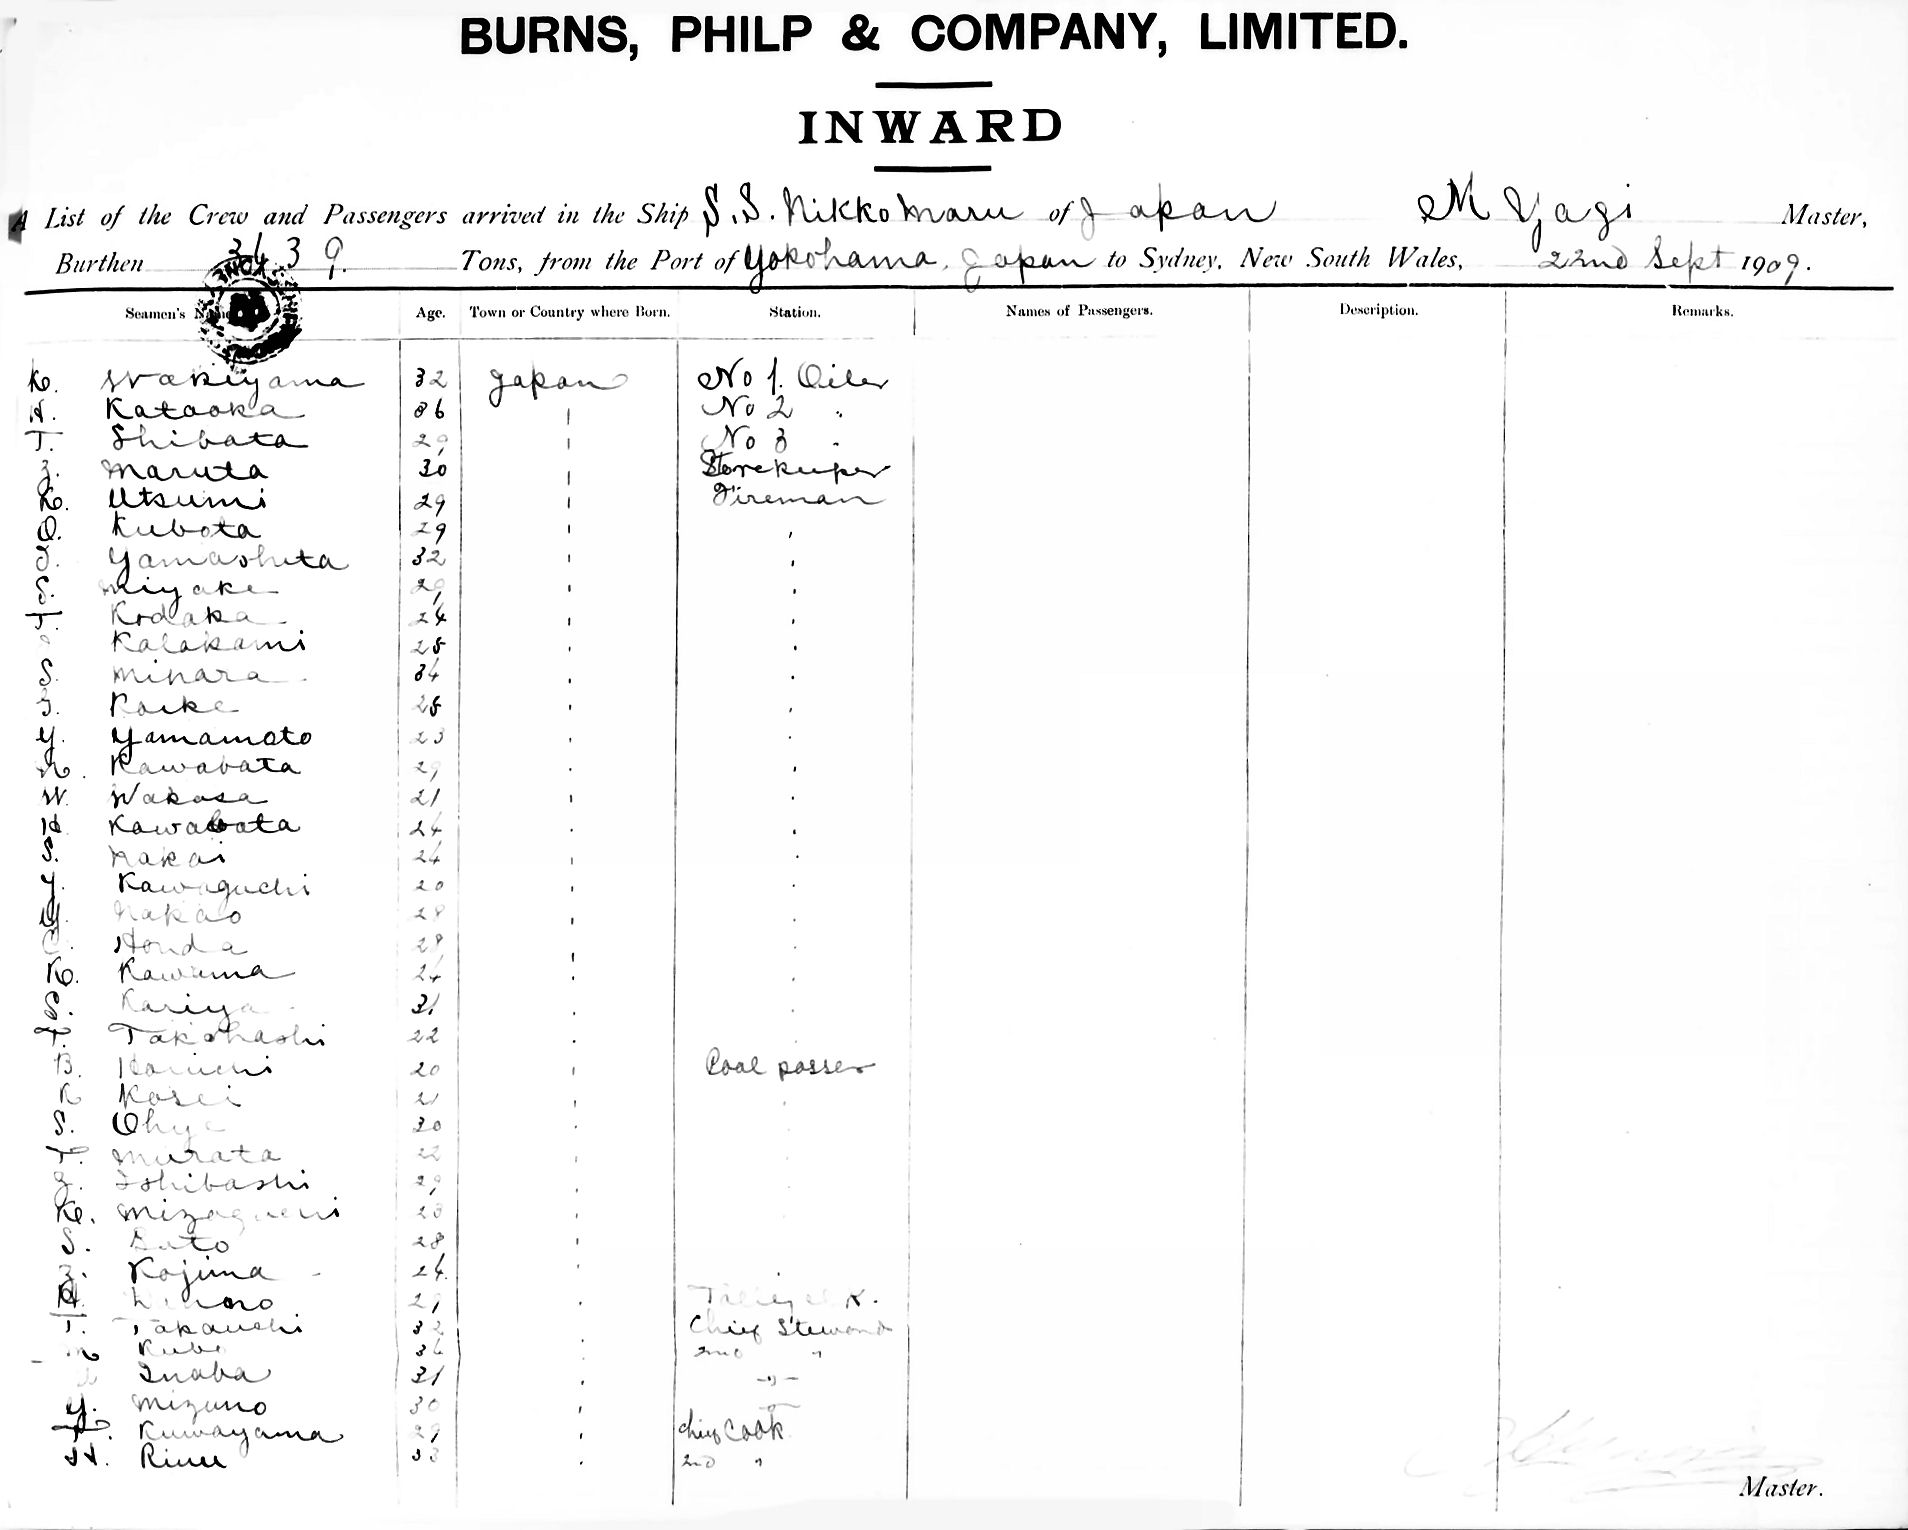 BURNS, PHILP & COMPANY, LIMITED.
INWARD
A List of the Crew and Passengers arrived in the Ship S.S. Nikko Maru of Japan M Yagi Master,
Burthen 3439. Tons, from the Port of Yokohama, Japan to Sydney, New South Wales, 22nd Sept 1909.
Seamen's Names. Age. Town or Country where Born. Station. Names of Passengers. Description. Remarks.
K. Wakiyama 32 Japan No 1. Oiler
H. Kataoka 36 " No 2 "
T. Shibata 29 " No 3 "
Z. Maruta 30 " Storekeeper
K. Utsumi 29 " Fireman
O. Kubota 29 " "
Yamashita 32 " "
S. Miyake 29 " "
T. Kodaka 24 " "
Kalakami 28 " "
S. Mihara 34 " "
Koike 28 " "
Y. Yamamoto 23 " "
Kawabata 29 " "
W. Wakasa 21 " "
H. Kawabata 24 " "
S. Nakai 24 " "
Y. Kawaguchi 20 " "
Y. Nakao 28 " "
Honda 28 " "
K. Kawama 24 " "
S. Kariya 31 " "
T. Takahashi 22 " "
B. 20 " Coal passer
K Kosei 21 " "
S. 30 " "
T. Murata 22 " "
Ishibashi 29 "
K. 23 "
S. 28 "
Z. Kojima 24 "
H. 29 "
T. Takauchi 32 " Chief Steward
Kubo 36 " 2nd "
Inaba 31 " -"-
Y. Mizuno 30 " "
T. Kuwayama 29 " Chief Cook
H. 33 " 2nd "
Master.